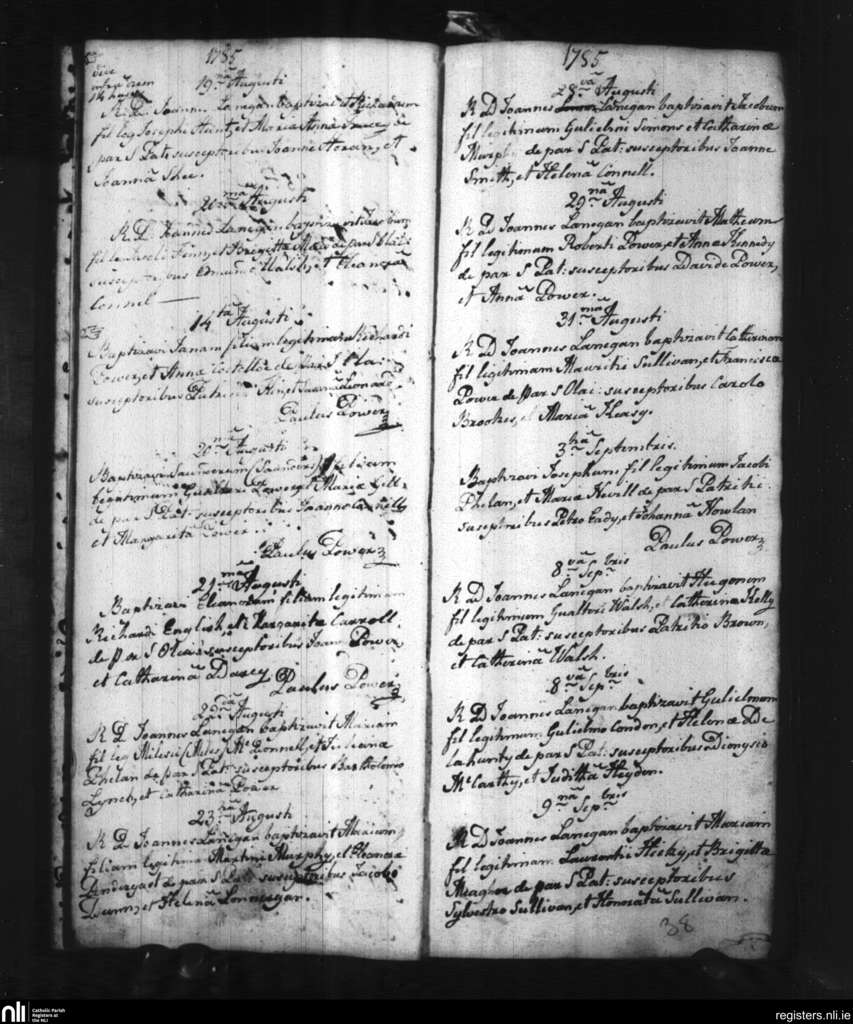 1785
19 Augusti
R. D. Joannes Lanegan baptizavit
fil leg Josephi Hunt, et Maria Anna de
par S Pat: susceptoribus Joanne Horan, et
Joannã Shee.
Augusti
R. D. Joannes Lanegan baptizavit
fil et Brigitta de par S
susceptoribus Edmund Walsh, et Eleanora
Connel
14 ta Augusti
Baptizavi filiam legitimam Richardi
Power, et Anna Costelloe de par S Olai
susceptoribus Patricio et
Paulus Power
20 ma Augusti
Baptizavi (Saunders)
legitimum Gualteri et Maria
de par S Pat: susceptoribus Joanne
et Margarita Power
Paulus Power
21 ma Augusti
Baptizavi Eleanoram filiam legitimam
Richardi English, et Margarita Carroll
de Par S Olai: susceptoribus Joanne Power
et Catharinã Darcy Paulus Power
Augusti
R D Joannes Lanegan baptizavit Mariam
fil leg Milesii (Miles) McDonnell, et Juliana
Phelan de par S Pat: susceptoribus Bartholomeo
Lynch, et Catharina Power
23 Augusti
R. D. Joannes Lanegan baptizavit Mariam
filiam legitima Martini Murphy, et Eleanora
Pendergast de par S Pat: susceptoribus Jacobo
Dunn, et Helenã Lonnergan.
1785
28 va Augusti
R D Joannes Lanegan baptizavit Jacobum
fil legitimum Gulielmi Simons et Catharinæ
Murphy de par S Pat: susceptoribus Joanne
Smith, et Helenã Connell.
29 na Augusti
R D Joannes Lanegan baptizavit Matheum
fil legitimum Roberti Power, et Anna Kennedy
de par S Pat: susceptoribus Davide Power,
et Annã Power.
31 ma Augusti
R D Joannes Lanegan baptizavit Catherinam
fil legitimam Mauritii Sullivan, et Francisca
Power de Par S Olai: susceptoribus Carolo
Brookes, et Mariã Keasy.
3 tia Septembris.
Baptizavi Josephum fil legitimum Jacobi
Phelan, et Maria Nevill de par S Patritii:
susceptoribus Petro Eady, et Johannã Nowlan
Paulus Power
8 va Sep bris
R D Joannes Lanegan baptizavit Hugonem
fil legitimum Gualteri Walsh, et Catherinæ Kelly
de par S Pat: susceptoribus Patritio Brown,
et Catherinã Walsh.
8 va Sep bris
R D Joannes Lanegan baptizavit Gulielmum
fil legitimum Gulielmo Condon, et Helenæ De
lahunty de par S Pat: susceptoribus Dionysio
McCarthy, et Judithã Heydon.
9 na Sep bris
R D Joannes Lanegan baptizavit Mariam
fil legitimam Laurentii Hicky, et Brigittæ
Meagher de par S Pat: susceptoribus
Sylvestro Sullivan, et Honoratã Sullivan.
38
nli
Catholic Parish
Registers at
the NLI
registers.nli.ie